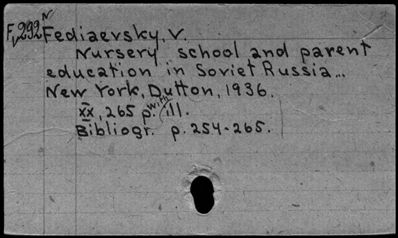 N
F,292 Fediaevsky, V.
Nursery school and parent
education in Soviet Russia...
New York, Dutton, 1936.
xx, 265 p. with ill.
Bibliogr. p. 254-265.